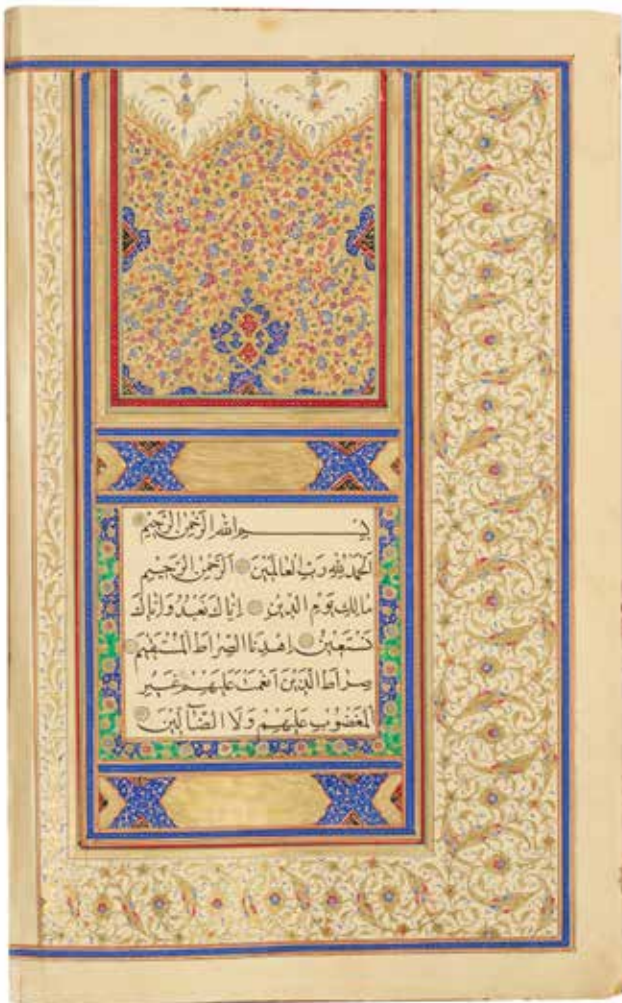 بِسْمِ اللهِ الرَّحْمٰنِ الرَّحِيْمِ
اَلْحَمْدُ لِلّٰهِ رَبِّ الْعَالَمِيْنَ اَلرَّحْمٰنِ الرَّحِيْمِ
مَالِكِ يَوْمِ الدِّيْنِ اِيَّاكَ نَعْبُدُ وَاِيَّاكَ
نَسْتَعِيْنُ اِهْدِنَا الصِّرَاطَ الْمُسْتَقِيْمَ
صِرَاطَ الَّذِيْنَ اَنْعَمْتَ عَلَيْهِمْ غَيْرِ
الْمَغْضُوْبِ عَلَيْهِمْ وَلَا الضَّآلِّيْنَ